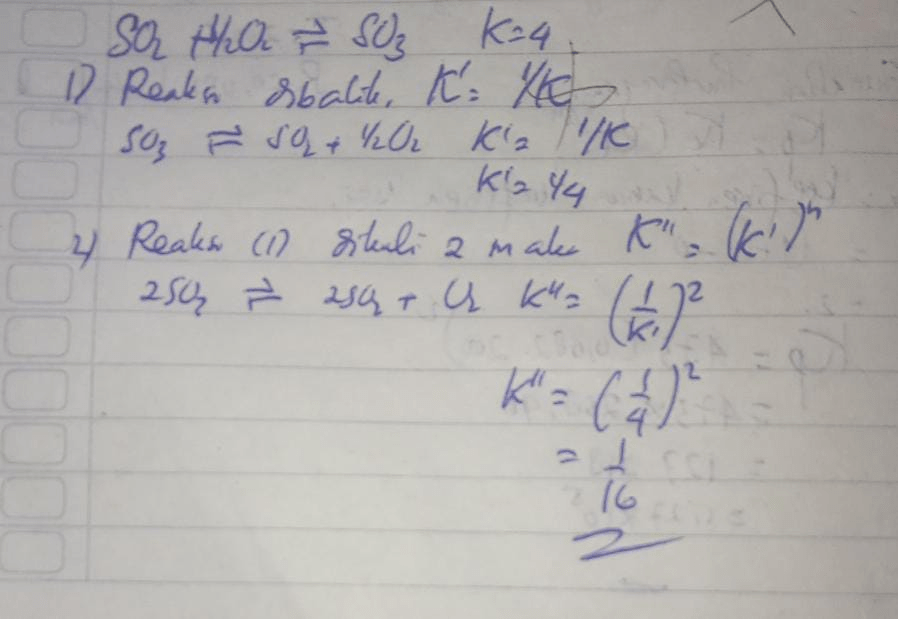 SO₂ + ½O₂ ⇌ SO₃ K = 4
1) Reaksi dibalik, K' = 1/K
SO₃ ⇌ SO₂ + ½O₂ K' = 1/K
K' = 1/4
2) Reaksi (1) dikali 2 maka K" = (K')ⁿ
2SO₃ ⇌ 2SO₂ + O₂ K" = (1/K')²
K" = (1/4)²
= 1/16